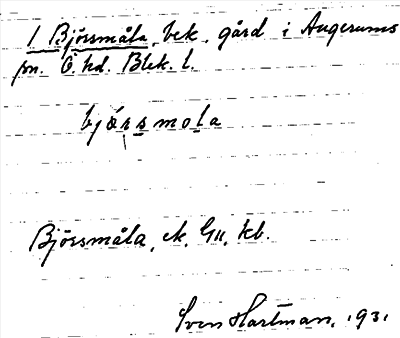 1 Björsmåla, bek. gård i Augerums
sn. Ö. hd. Blek. l.
bjórsmola
Björsmåla, ek. Gu, kb.
Sven Hartman, 1931